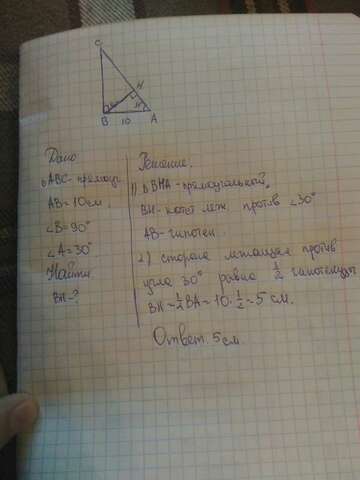 C
H
B 10 A
Дано
△ABC - прямоуг.
AB = 10 см,
∠B = 90°
∠A = 30°
Найти
BH - ?
Решение.
1) △BHA - прямоугольный,
BH - катет леж. против ∠30°
AB - гипотен.
2) сторона лежащая против
угла 30° равна 1/2 гипотенузы
BH = 1/2 BA = 10 · 1/2 = 5 см.
Ответ 5 см.